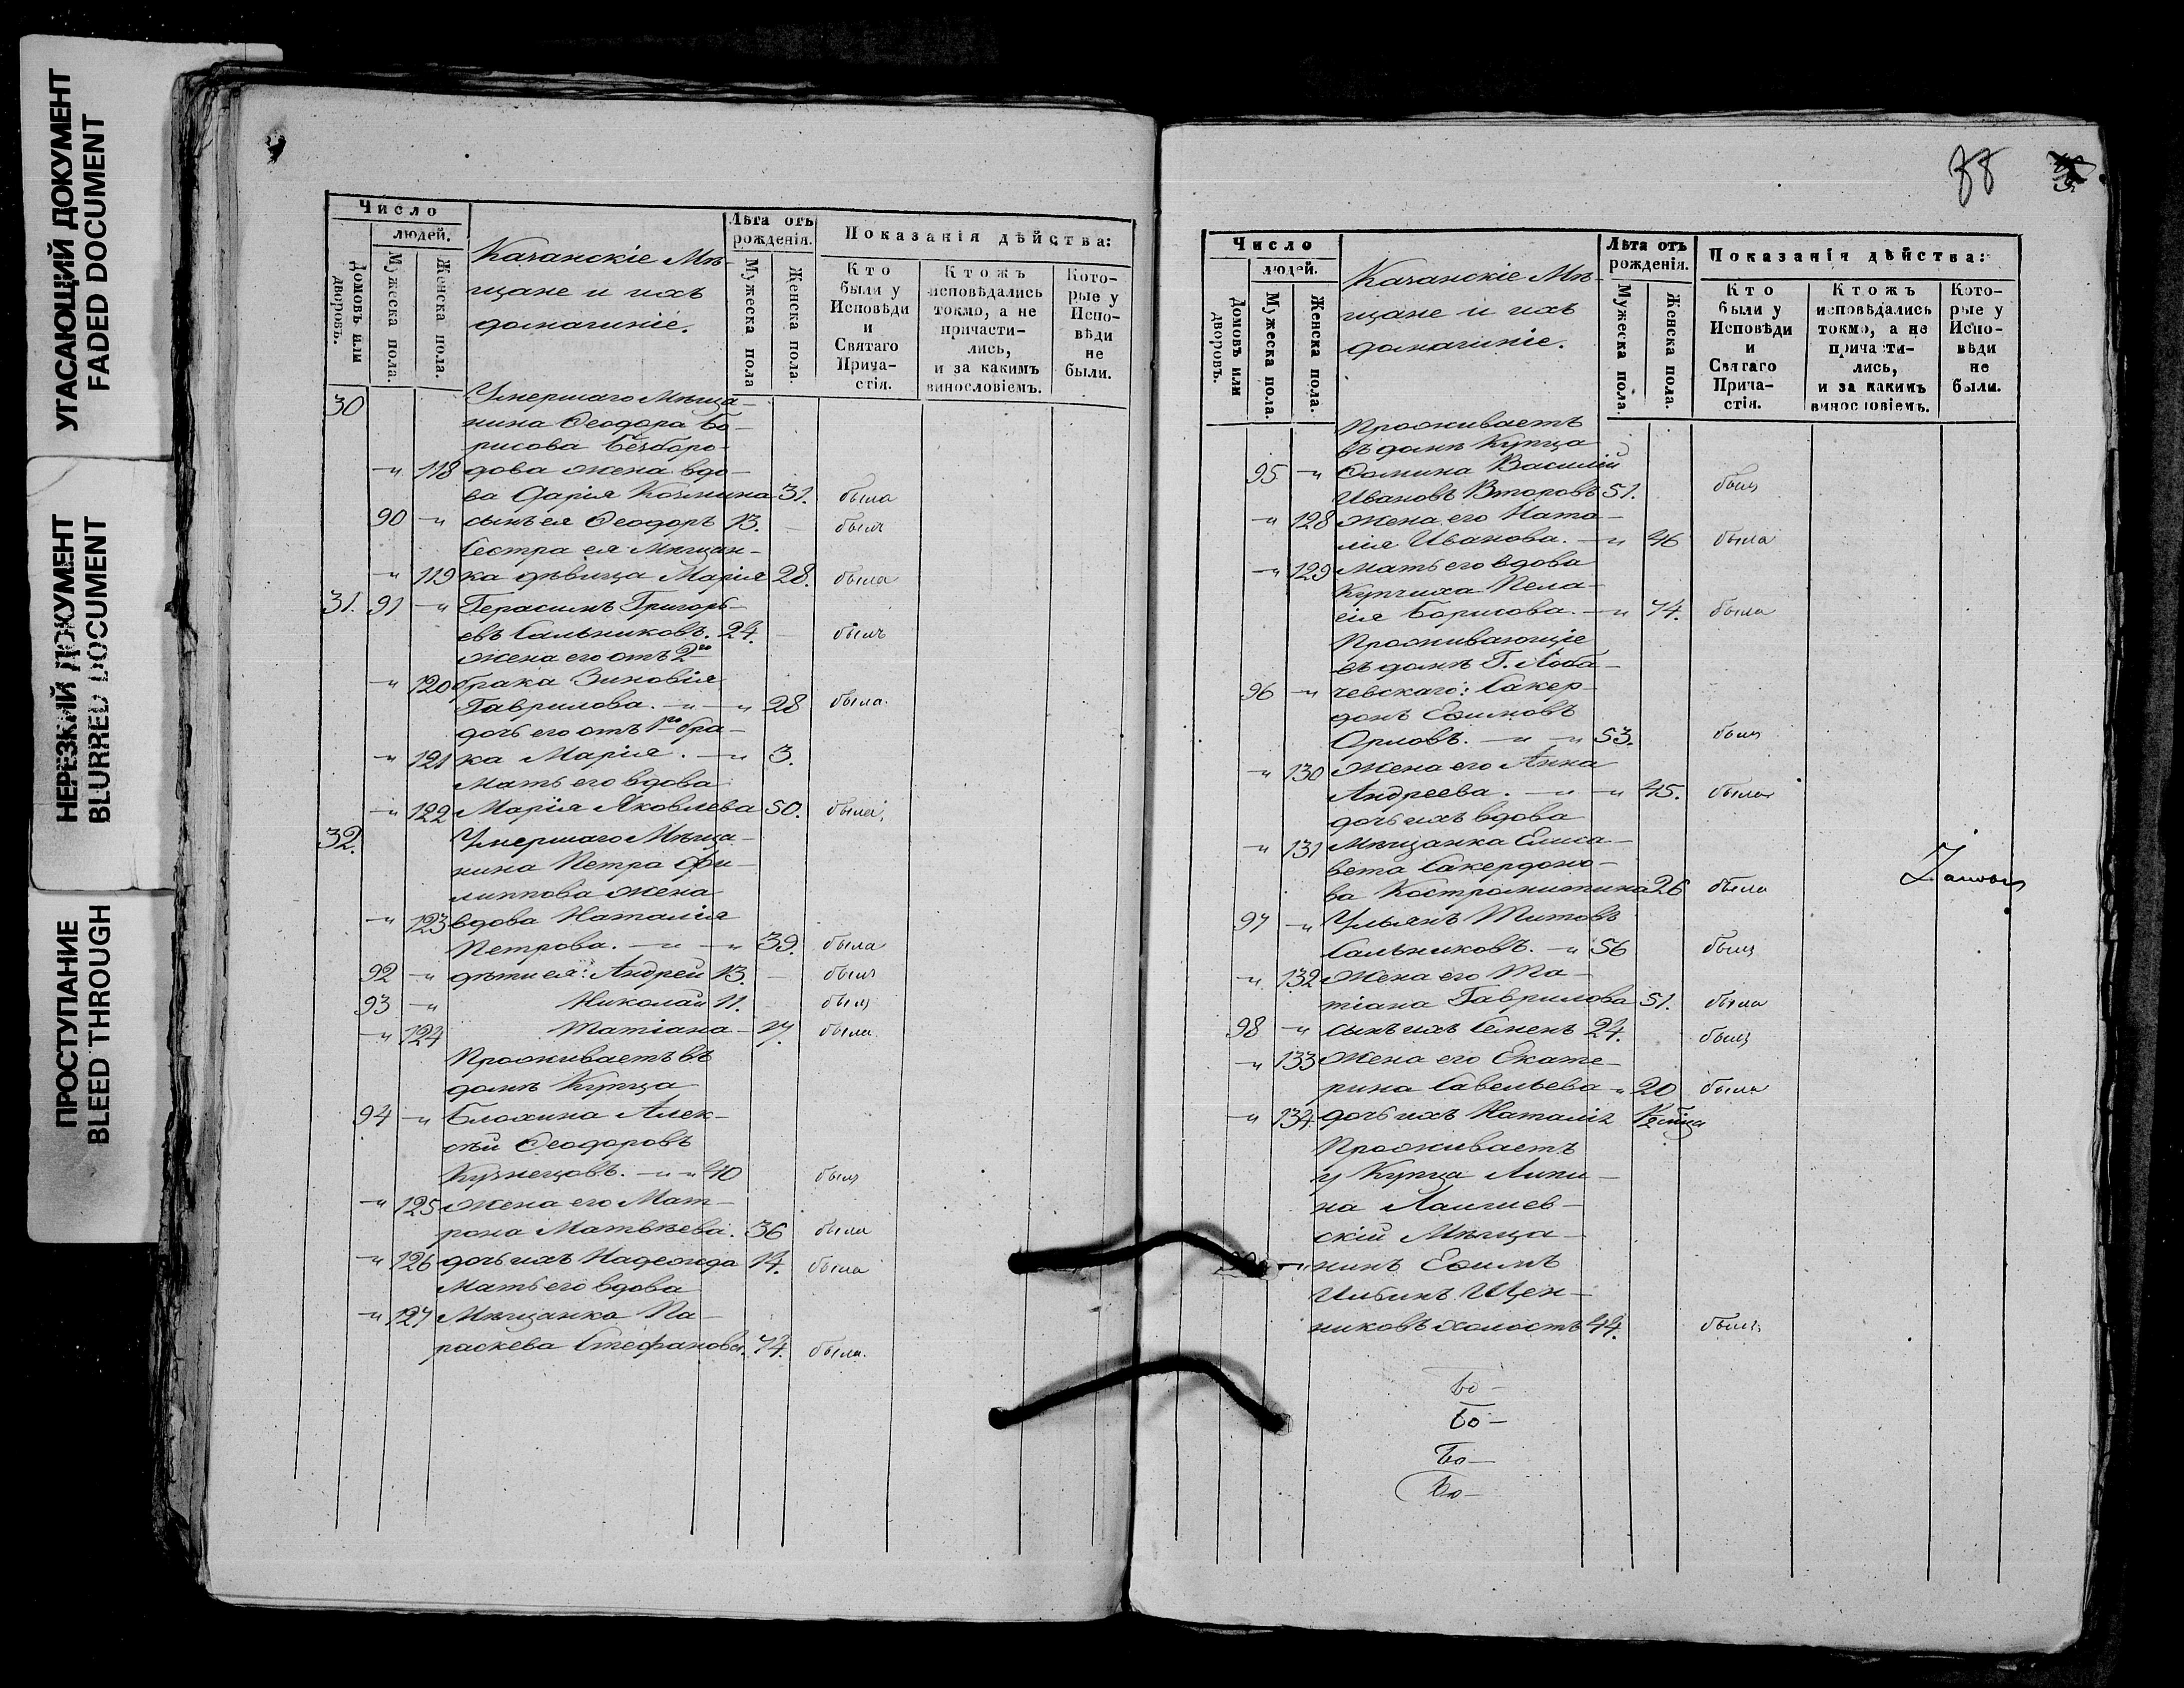 УГАСАЮЩИЙ ДОКУМЕНТ
FADED DOCUMENT
НЕРЕЗКИЙ ДОКУМЕНТ
BLURRED DOCUMENT
ПРОСТУПАНИЕ
BLEED THROUGH
Число
людей.
Домовъ или дворовъ.
Мужеска пола.
Женска пола.
Казанскіе Мѣ-
щане и ихъ
домашніе.
Лѣта отъ
рожденія.
Мужеска пола
Женска пола.
Показанія дѣйства:
Кто
были у
Исповѣди
и
Святаго
Прича-
стія.
Ктожъ
исповѣдались
токмо, а не
причасти-
лись,
и за какимъ
винословіемъ.
Кото-
рые у
Испо-
вѣди
не
были.
30 Умершаго Мѣща-
нина Ѳеодора Бо-
рисова Безборо-
" 118 дова жена вдо-
ва Дарія Козмина 31. была
90 " сынъ ея Ѳеодоръ 13. былъ
Сестра ея Мѣщан-
" 119 ка дѣвица Марія 28. была
31. 91 " Герасимъ Григорь-
евъ Сальниковъ. 24. былъ
жена его отъ 2го
" 120 брака Зиновія
Гаврилова. " " 28 была.
дочь его отъ 1го бра-
" 121 ка Марія. " 3.
Мать его вдова
" 122 Марія Яковлева 50. была
32. Умершаго Мѣща-
нина Петра Фи-
липпова жена
" 123 вдова Наталія
Петрова. " " 39. была
92 " дѣти ея: Андрей 13. былъ
93 " Николай 11. былъ
" 124 Татіана 17. была
Проживаетъ въ
домѣ Купца
94 " Блохина Алек-
сѣй Ѳеодоровъ
Кузнецовъ. " " 40 былъ
" 125 жена его Мат-
рона Матвѣева. 36 была
" 126 дочь ихъ Надежда 14. была
Мать его вдова
" 127 Мѣщанка Па-
раскева Стефанова. 74. была.
88
Число
людей.
Домовъ или дворовъ.
Мужеска пола.
Женска пола.
Казанскіе Мѣ-
щане и ихъ
домашніе.
Лѣта отъ
рожденія.
Мужеска пола.
Женска пола.
Показанія дѣйства:
Кто
были у
Исповѣди
и
Святаго
Прича-
стія.
Ктожъ
исповѣдались
токмо, а не
причасти-
лись,
и за какимъ
винословіемъ.
Кото-
рые у
Испо-
вѣди
не
были.
Проживаетъ
въ домѣ Купца
95 " Ѳомина Василій
Ивановъ Второвъ 51. былъ
" 128 жена его Ната-
лія Иванова. " 46 была
" 129 Мать его вдова
Купчиха Пела-
гія Борисова. " 74. была
Проживающіе
въ домѣ Г. Лоба-
96 " чевскаго: Сакер-
донъ Еѳимовъ
Орловъ. " " 53. былъ
" 130 Жена его Анна
Андреева. " " 45. была
дочь ихъ вдова
" 131 Мѣщанка Елиса-
вета Сакердоно-
ва Костромитина 26 была
97 " Ульянъ Титовъ
Сальниковъ. " 56 былъ
" 132 Жена его Та-
тіана Гаврилова 51. была
98 " сынъ ихъ Семенъ 24. былъ
" 133 Жена его Екате-
рина Савельева " 20 была
" 134 дочь ихъ Наталія
Проживаетъ
у Купца Липи-
на Лаишев-
скій Мѣща-
" нинъ Еѳимъ
Ильинъ Щен-
никовъ холостъ 44. былъ